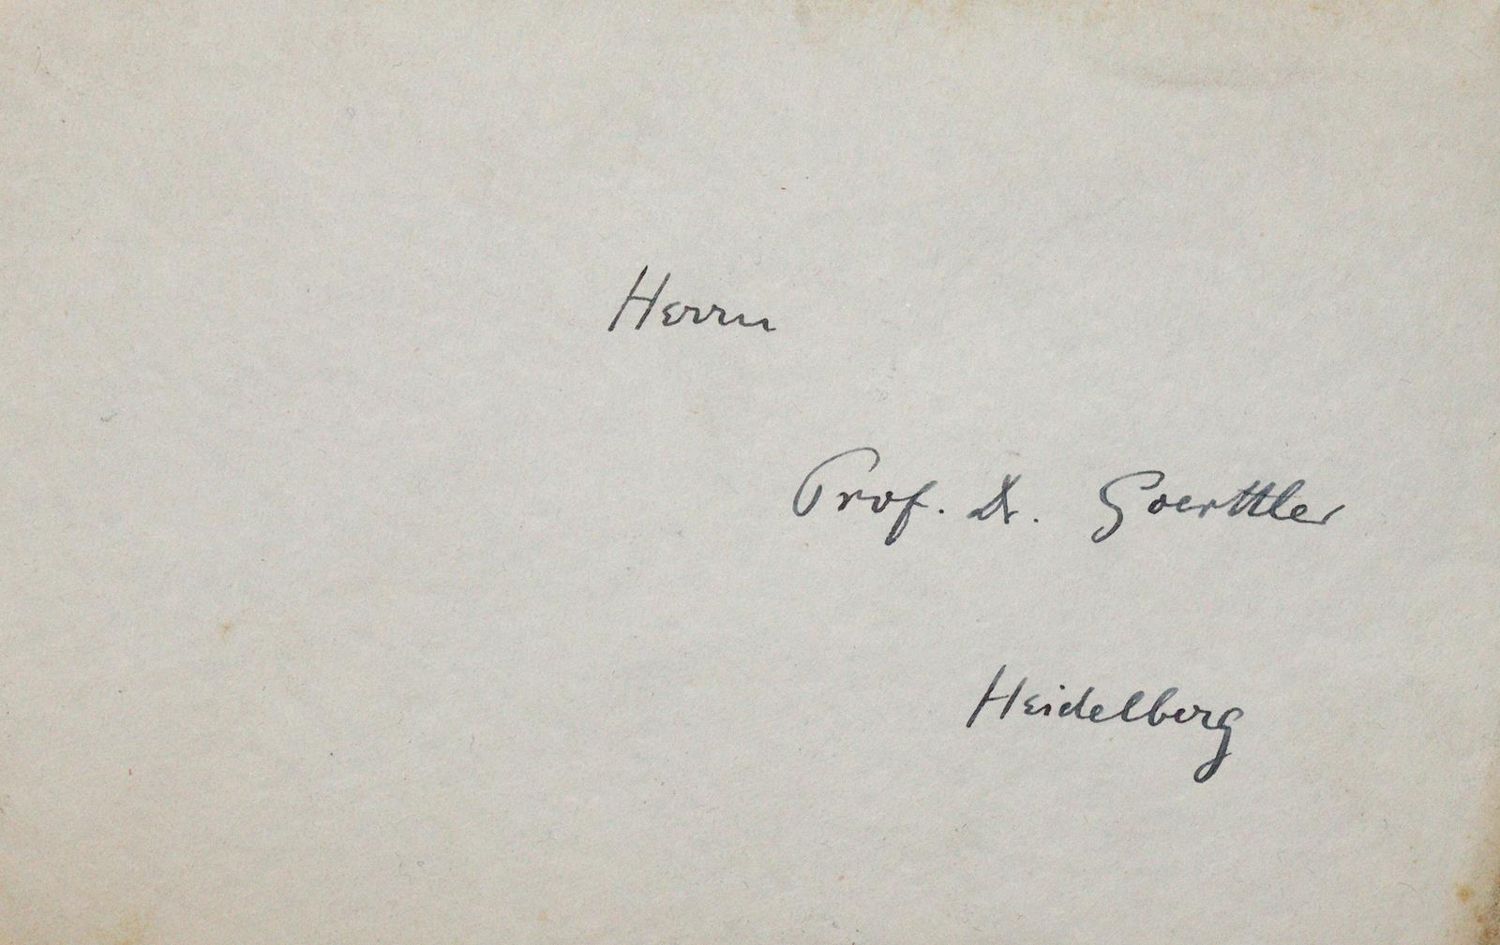 Herrn
Prof. Dr. Goerttler
Heidelberg